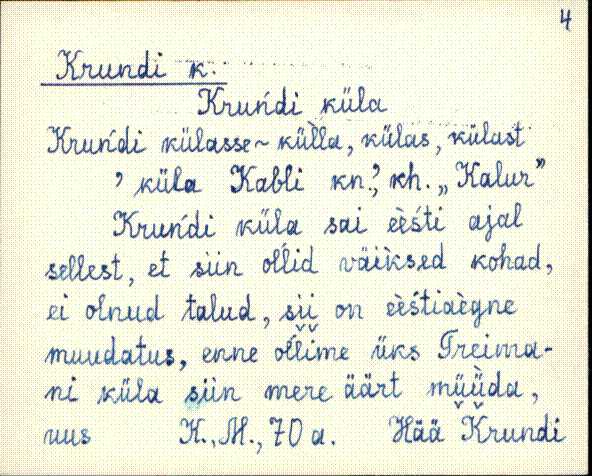 4
Krundi k.
Kruńdi küla
Kruńdi külasse ~ kül̀la, külas, külast
’ küla Kabli kn.’, kh. „Kalur”
Kruńdi küla sai eèśti ajal
sellest, et siin ol̀lid väìksed kohad,
ei olnud talud, sii on eèśtiaègne
muudatus, enne ol̀lime üks Treima-
ni küla siin mere äärt müǜda,
uus K., M., 70 a. Hää Krundi